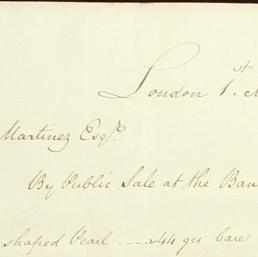 London 1st
Martinez Esqr.
By Public Sale at the Ban
shaped Pearl 44 grs bare